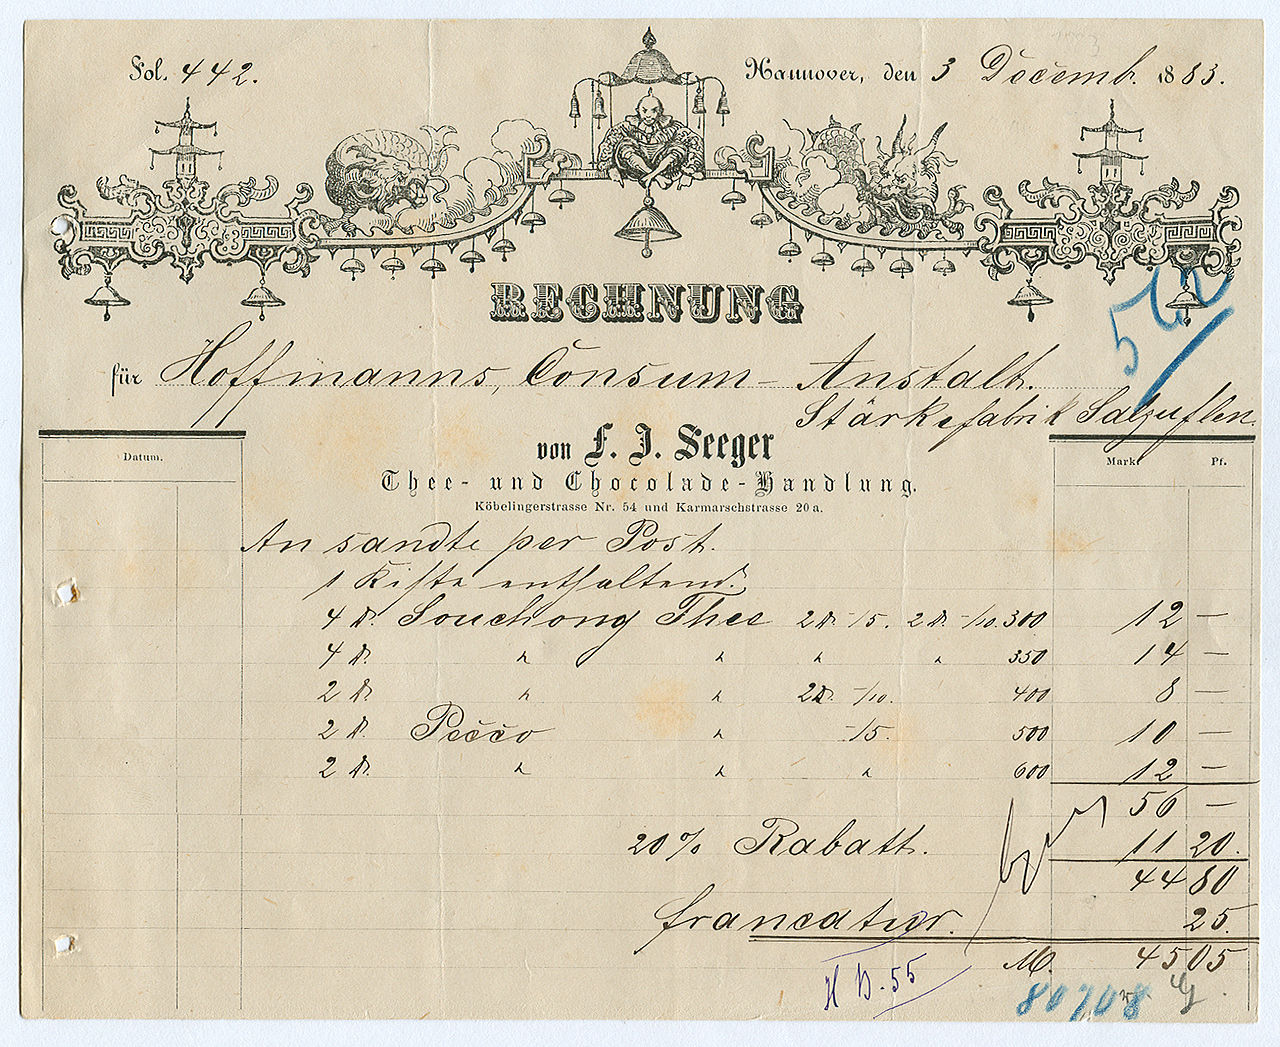 Fol. 442.
Hannover, den 3 Decemb. 1883.
RECHNUNG
für Hoffmanns, Consum-Anstalt.
Stärkefabrik Salzuflen.
von F. J. Seeger
Thee- und Chocolade-Handlung.
Köbelingerstrasse Nr. 54 und Karmarschstrasse 20 a.
Datum. Mark. Pf.
An sandte per Post.
1 Kiste enthaltend:
4 ℔. Souchong Thee 2℔. -/5. 2℔. -/10. 300 12 —
4 ℔. " " " " 350 14 —
2 ℔. " " 2℔. -/10. 400 8 —
2 ℔. Pecco " -/5. 500 10 —
2 ℔. " " " 600 12 —
56 —
20% Rabatt. 11 20.
44 80
francatur. 25.
M. 45 05
80708